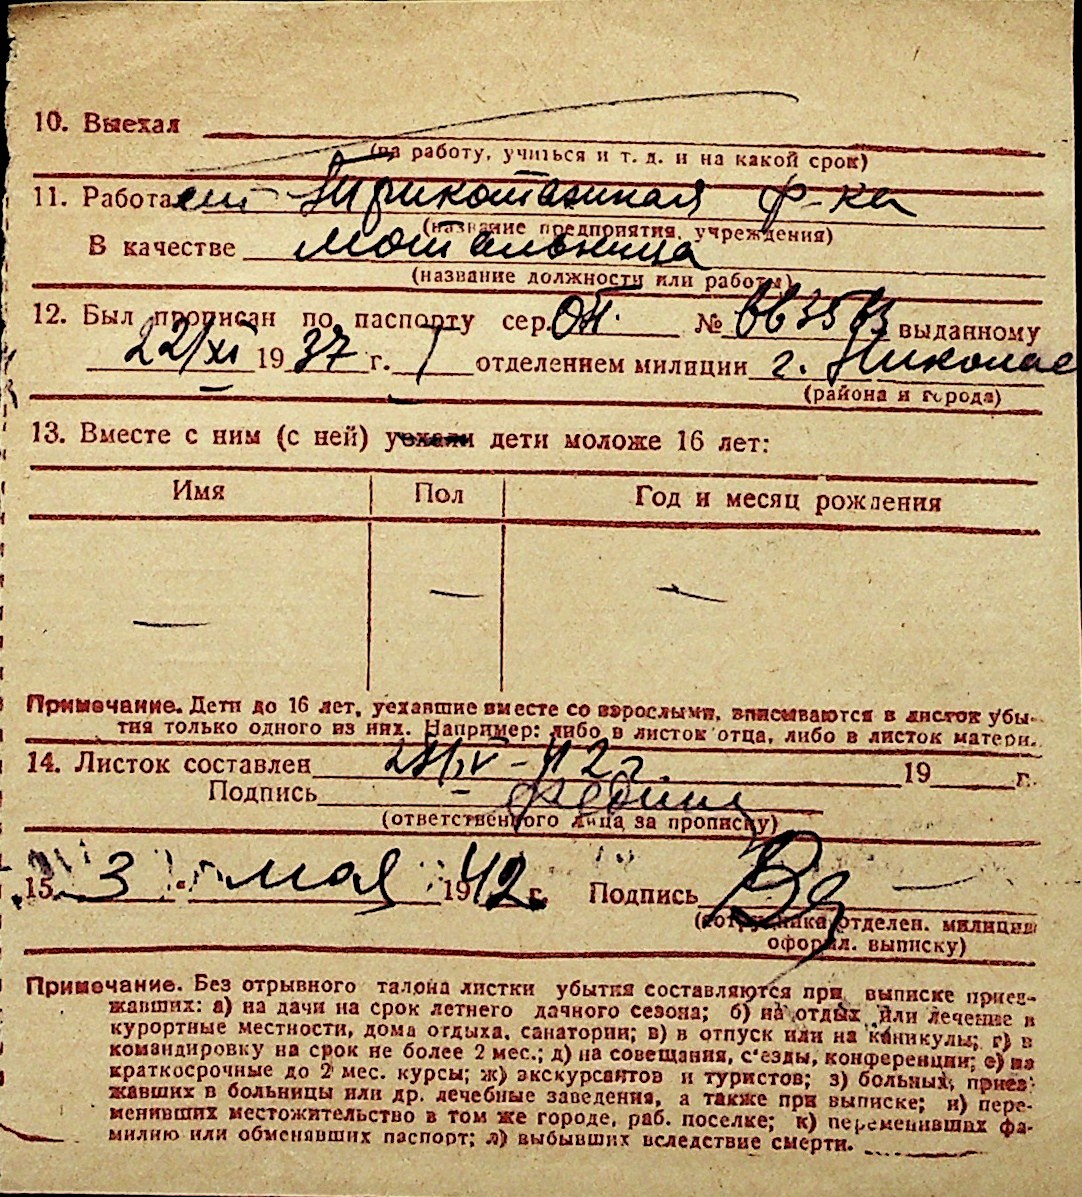 10. Выехал
(на работу, учиться и т. д. и на какой срок)
11. Работает Трикотажная ф-ка
(название предприятия, учреждения)
В качестве мотальница
(название должности или работы)
12. Был прописан по паспорту сер. ОП. № выданному
22/XI 1937 г. 7 отделением милиции г. Николае
(района и города)
13. Вместе с ним (с ней) уехали дети моложе 16 лет:
Имя Пол Год и месяц рождения
— — —
Примечание. Дети до 16 лет, уехавшие вместе со взрослыми, вписываются в листок убы-
тия только одного из них. Например: либо в листок отца, либо в листок матери.
14. Листок составлен 42 г. 19 г.
Подпись
(ответственного лица за прописку)
15. 3 " мая 1942 г. Подпись
(сотрудника отделен. милиции
оформ. выписку)
Примечание. Без отрывного талона листки убытия составляются при выписке приез-
жавших: а) на дачи на срок летнего дачного сезона; б) на отдых или лечение в
курортные местности, дома отдыха, санатории; в) в отпуск или на каникулы; г) в
командировку на срок не более 2 мес.; д) на совещания, с'езды, конференции; е) на
краткосрочные до 2 мес. курсы; ж) экскурсантов и туристов; з) больных, приез-
жавших в больницы или др. лечебные заведения, а также при выписке; и) пере-
менивших местожительство в том же городе, раб. поселке; к) переменивших фа-
милию или обменявших паспорт; л) выбывших вследствие смерти.